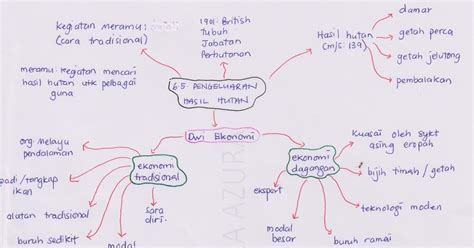 kegiatan meramu:
(cara tradisional)
1901: British
Tubuh
Jabatan
Perhutanan
Hasil hutan
(m/s: 139)
damar
getah perca
getah jelutong
pembalakan
meramu: kegiatan mencari
hasil hutan utk pelbagai
guna
6.5 PENGELUARAN
HASIL HUTAN
Dwi Ekonomi
org melayu
pedalaman
ekonomi
tradisional
padi/tangkap
ikan
alatan tradisional
buruh sedikit
modal
sara
diri.
ekonomi
dagangan
Kuasai oleh sykt
asing eropah
bijih timah / getah
teknologi moden
buruh ramai
modal
besar
eksport